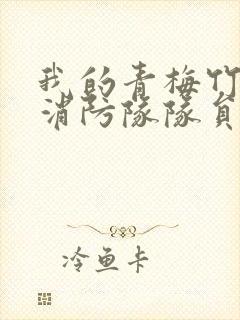 我的青梅竹
消防隊隊員
冷鱼卡